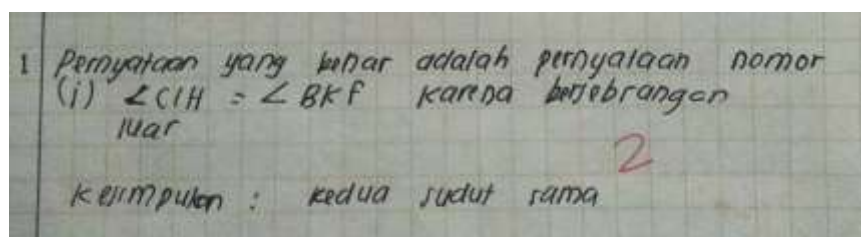 1 Pernyataan yang benar adalah pernyataan nomor
(i) ∠CIH = ∠BKF karena bersebrangan
luar
2
Kesimpulan : kedua sudut sama